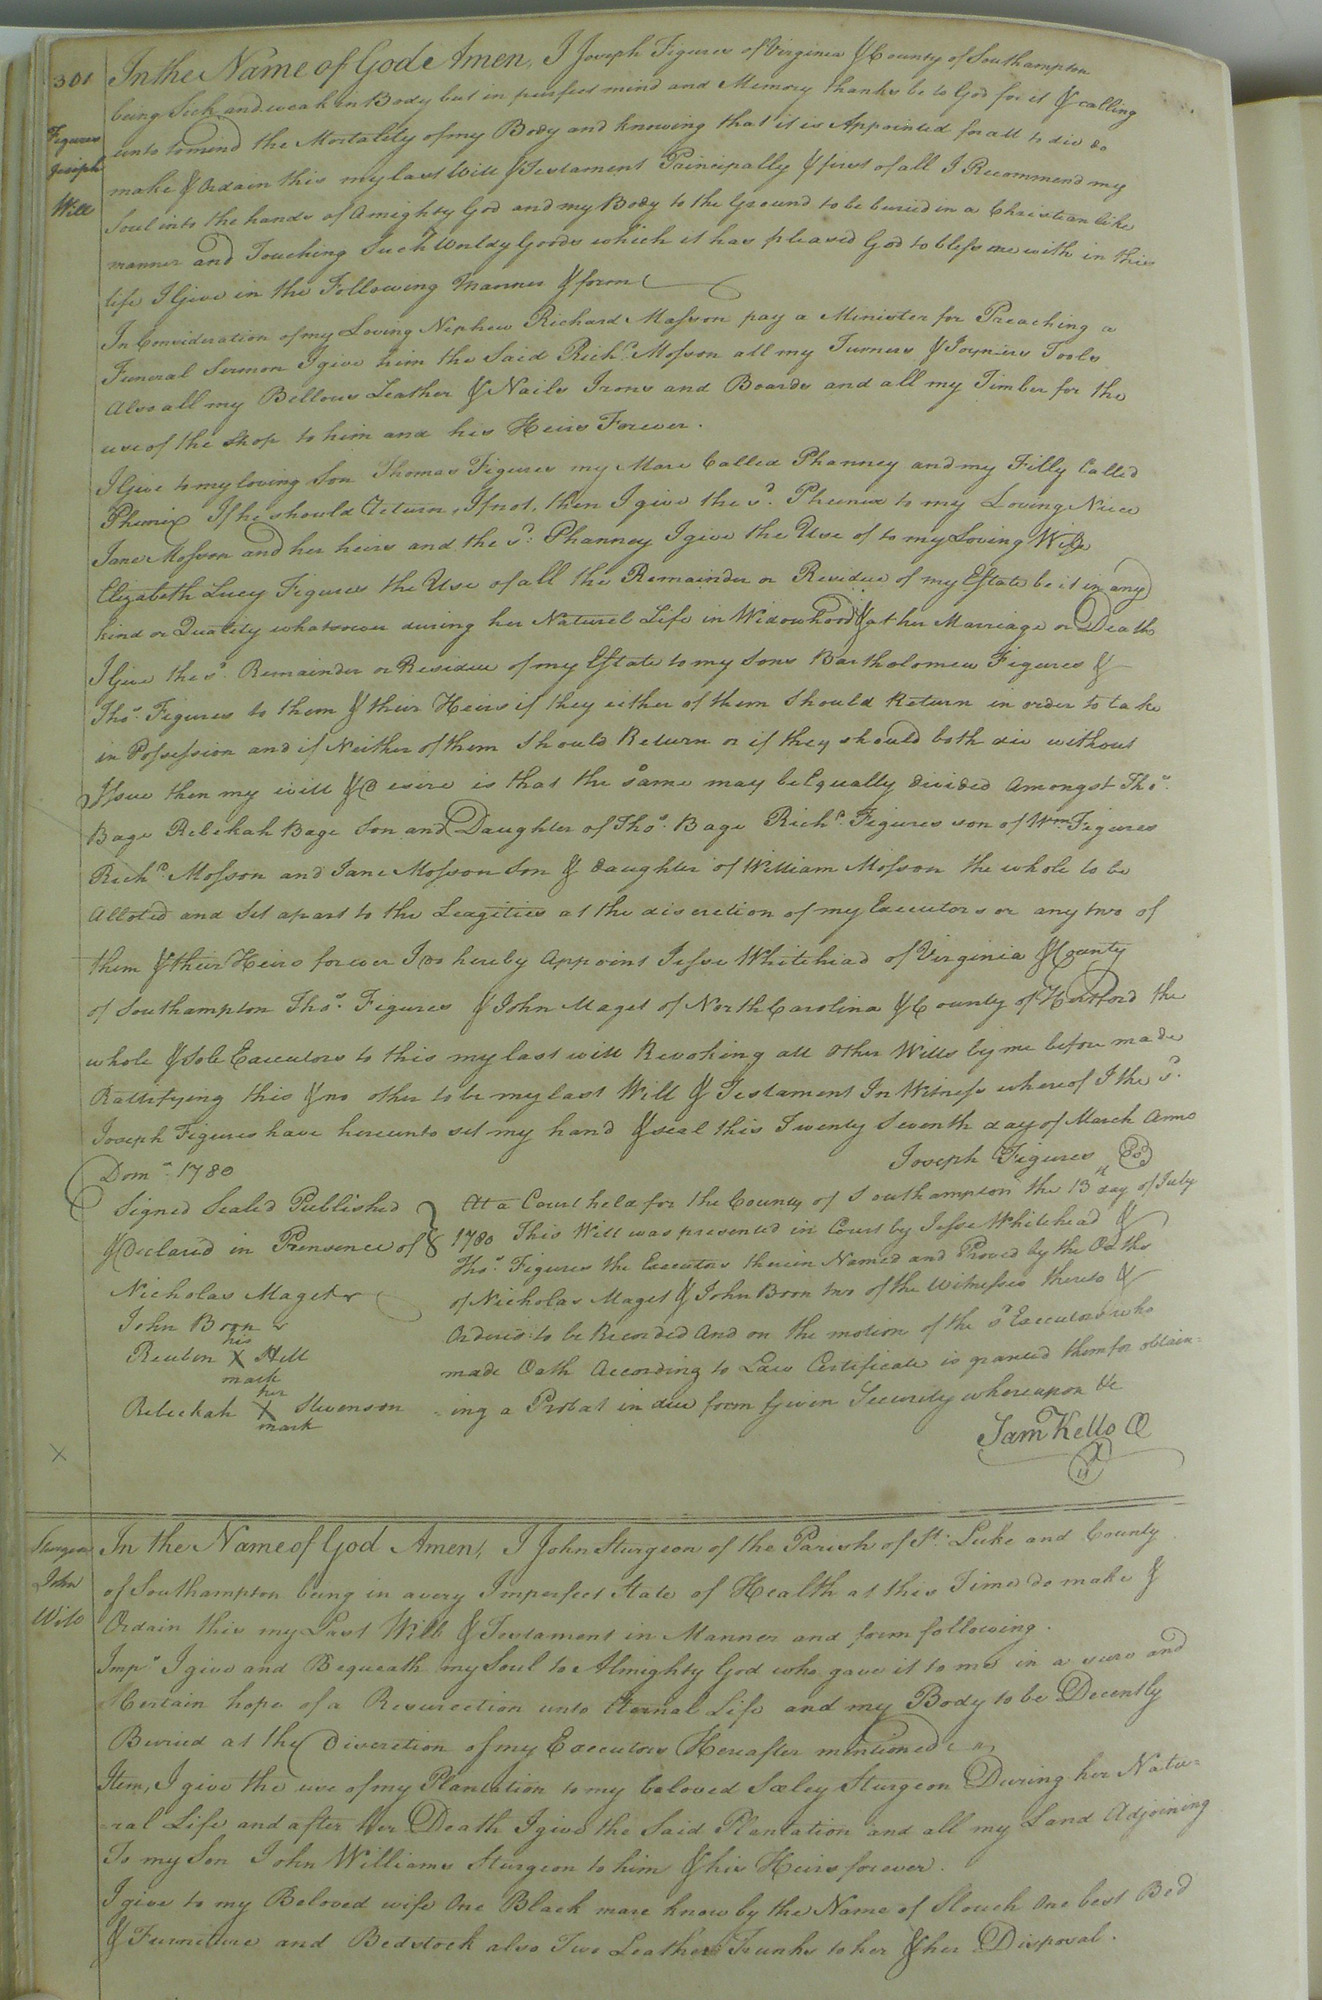 301
Figures
Joseph
Will
In the Name of God Amen, I Joseph Figures of Virginia & County of Southampton
being Sick and weak in Body but in perfect mind and Memory thanks be to God for it & calling
unto to mind the Mortality of my Body and knowing that it is Appointed for all to die do
make & Ordain this my last Will & Testament Principally & first of all I Recommend my
Soul into the hands of Amighty God and my Body to the Ground to be buried in a Christian like
manner and Touching Such Worldy Goods which it has pleased God to bless me with in this
life I Give in the Following Manner & form
In Consideration of my Loving Nephew Richard Mosson pay a Minister for Preaching a
Funeral Sermon I give him the Said Richd. Mosson all my Turners & Joyniers Tools
Also all my Bellows Leather & Nails Irons and Boards and all my Timber for the
use of the Shop to him and his Heirs Forever.
I Give to my loving Son Thomas Figures my Mare Called Phanney and my Filly Called
Phenix If he should Return, If not, then I give the sd. Pheenix to my Loving Niece
Jane Mosson and her heirs and the sd. Phanney I give the Use of to my Loving Wife
Elizabeth Lucy Figures the Use of all the Remainder or Residue of my Estate be it in any
kind or Quality whatsoever during her Naturel Life in Widowhood & at her Marriage or Death
I Give the sd. Remainder or Residue of my Estate to my Sons Bartholomew Figures &
Thos. Figures to them & their Heirs if they either of them Should Return in order to take
in Possession and if Neither of them Should Return or if they should both die without
Issue then my will & Desire is that the Same may be Equally divided Amongst Thos.
Bage Rebekah Bage Son and Daughter of Thos. Bage Richd. Figures son of Wm. Figures
Richd. Mosson and Jane Mosson Son & daughter of William Mosson the whole to be
Alloted and Set apart to the Leagities at the discretion of my Executors or any two of
them & their Heirs forever I do hereby Appoint Jesse Whitehead of Virginia & County
of Southampton Thos. Figures & John Maget of North Carolina & County of Hertford the
whole & Sole Executors to this my last will Revoking all Other Wills by me before made
Rattifying this & no other to be my last Will & Testament In Witness whereof I the sd.
Joseph Figures have hereunto set my hand & seal this Twenty Seventh day of March Anno
Dom. 1780
Joseph Figures
Signed Sealed Published
& Declared in Prensence of
Nicholas Maget
John Boon
his
Reuben X Hill
mark
her
Rebeckah X Stevenson
mark
At a Court held for the County of Southampton the 13th day of July
1780 This Will was presented in Court by Jesse Whitehead &
Thos. Figures the Executors therein Named and Proved by the Oaths
of Nicholas Maget & John Boon two of the Witnesses thereto &
Ordered to be Recorded And on the motion of the sd. Executors who
made Oath According to Law Certificate is granted them for obtain-
ing a Probat in due form Given Security whereupon &c
Sam Kello
X
Sturgeon
John
Will
In the Name of God Amen, I John Sturgeon of the Parish of St. Luke and County
of Southampton being in a very Imperfect State of Health at this Time do make &
Ordain this my Last Will & Testament in Manner and form following.
Imps. I give and Bequeath my Soul to Almighty God who gave it to me in a sure and
Certain hope of a Resurection unto Eternal Life and my Body to be Decently
Buried at the Discretion of my Executors Hereafter mentioned
Item, I give the use of my Plantation to my beloved Sæley Sturgeon During her Natu-
ral Life and after her Death I give the Said Plantation and all my Land Adjoining
To my Son John Williams Sturgeon to him & his Heirs forever.
I give to my Beloved wife One Black mare know by the Name of Slouch One best Bed
& Furneiture and Bedstock also Two Leather Trunks to her & her Disposal.